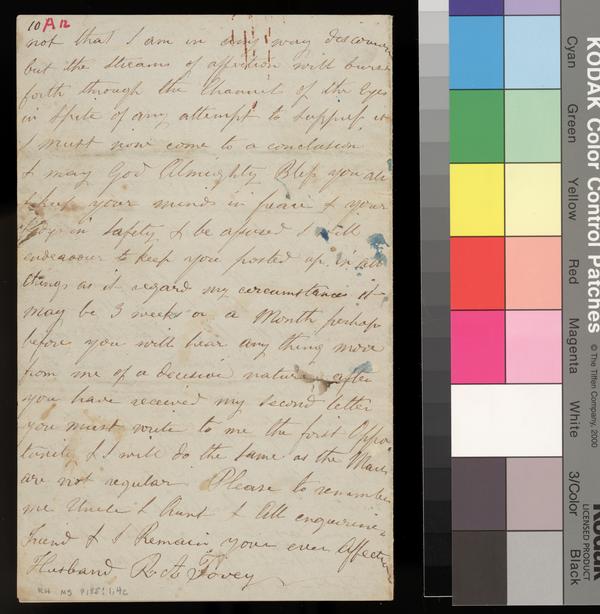 10 A 12
not that I am in any way discour
but the streams of affection will burst
forth through the channel of the Eyes
in spite of any attempt to suppress it
I must now come to a conclusion
& may God Almighty Bless you all
& keep your minds in peace & your
in safety & be assured I will
endeavour to keep you posted up in all
things as it regard my circumstances it
may be 3 weeks or a Month perhaps
before you will hear any thing more
from me of a decisive nature after
you have received my second letter
you must write to me the first Oppo
tunity & I will do the same as the Mails
are not regular Please to remember
me Uncle & Aunt & All enquiring
Friend & I Remain your ever Affection
Husband R A Tovey
RH MS P185:1.4c
KODAK Color Control Patches
© The Tiffen Company, 2000
Cyan
Green
Yellow
Red
Magenta
White
3/Color
Black
Kodak
LICENSED PRODUCT